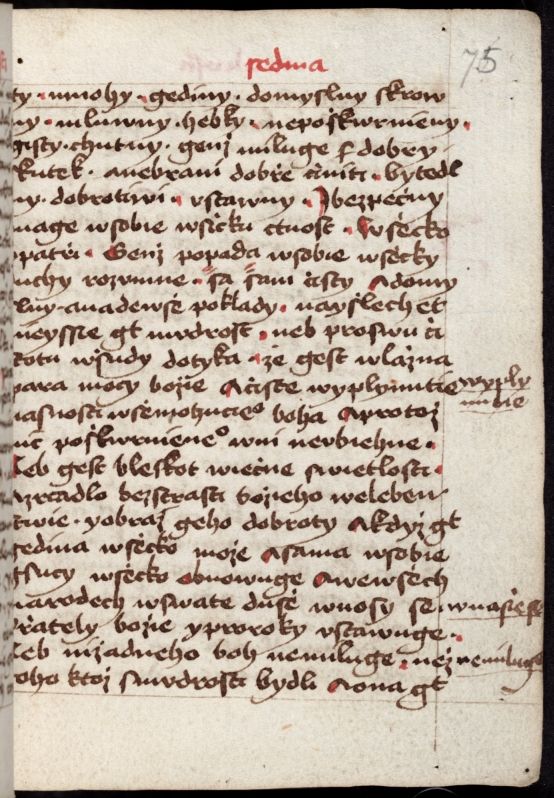 sedma
75
ty · mnohy · gediny · domyslny skrow
ny · mluwny · hebky · neposkwrnieny ·
gisty · chutny · genz miluge dobry
skutek · anebrani dobrze cziniti · bytedl
ny · dobrotiwi · vstawny · Jbezpeczny
mage wsobie wsiczku ctnost · Wseczko
patrzi · Genz popada wsobie wseczky
duchy rozumne · sa sam czisty Adomy
slny · anadewsse poklady · nayslechet
neyssie gt mudrost · neb proswu czi
stotu wsudy dotyka · ze gest wlazna
para moczy bozie Aczista wyplynutie
wyply
nutie
iasnosti wsemohuczieo boha Aprotoz
nicz poskwrnieneo wni newbiehne ·
Neb gest bleskot wieczne swietlosti ·
Azrcadlo bezstrasti bozieho weleben
stwie · yobraz geho dobroty Akdyz gt
gedina wseczko moze Asama wsobie
gsucy wseczko obnowuge Awewsech
narodech wswate dusse wnosy se ·
Przately bozie yproroky vstawuge ·
Neb nizadneho boh nemiluge · nez
nemiluge
toho ktoz smudrosti bydli Aona gt